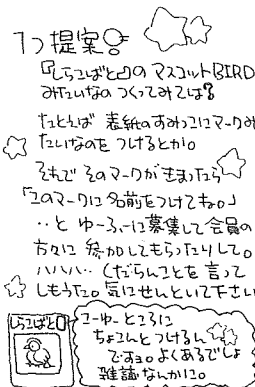 1つ提案
『しらこばと』のマスコットBIRD
みたいなの つくってみては?
たとえば 表紙のすみっこにマークみ
たいなのを つけるとか。
それで そのマークがきまったら
「このマークに名前をつけてネ。」
‥と ゆーふーに募集して会員の
方々に 参加してもらったりして。
ハハハ… くだらんことを 言って
しもうた。気にせんといて下さい
しらこばと
こーゆー ところに
ちょこんと つけるん
ですョ。よくあるでしょ
雑誌なんかに。